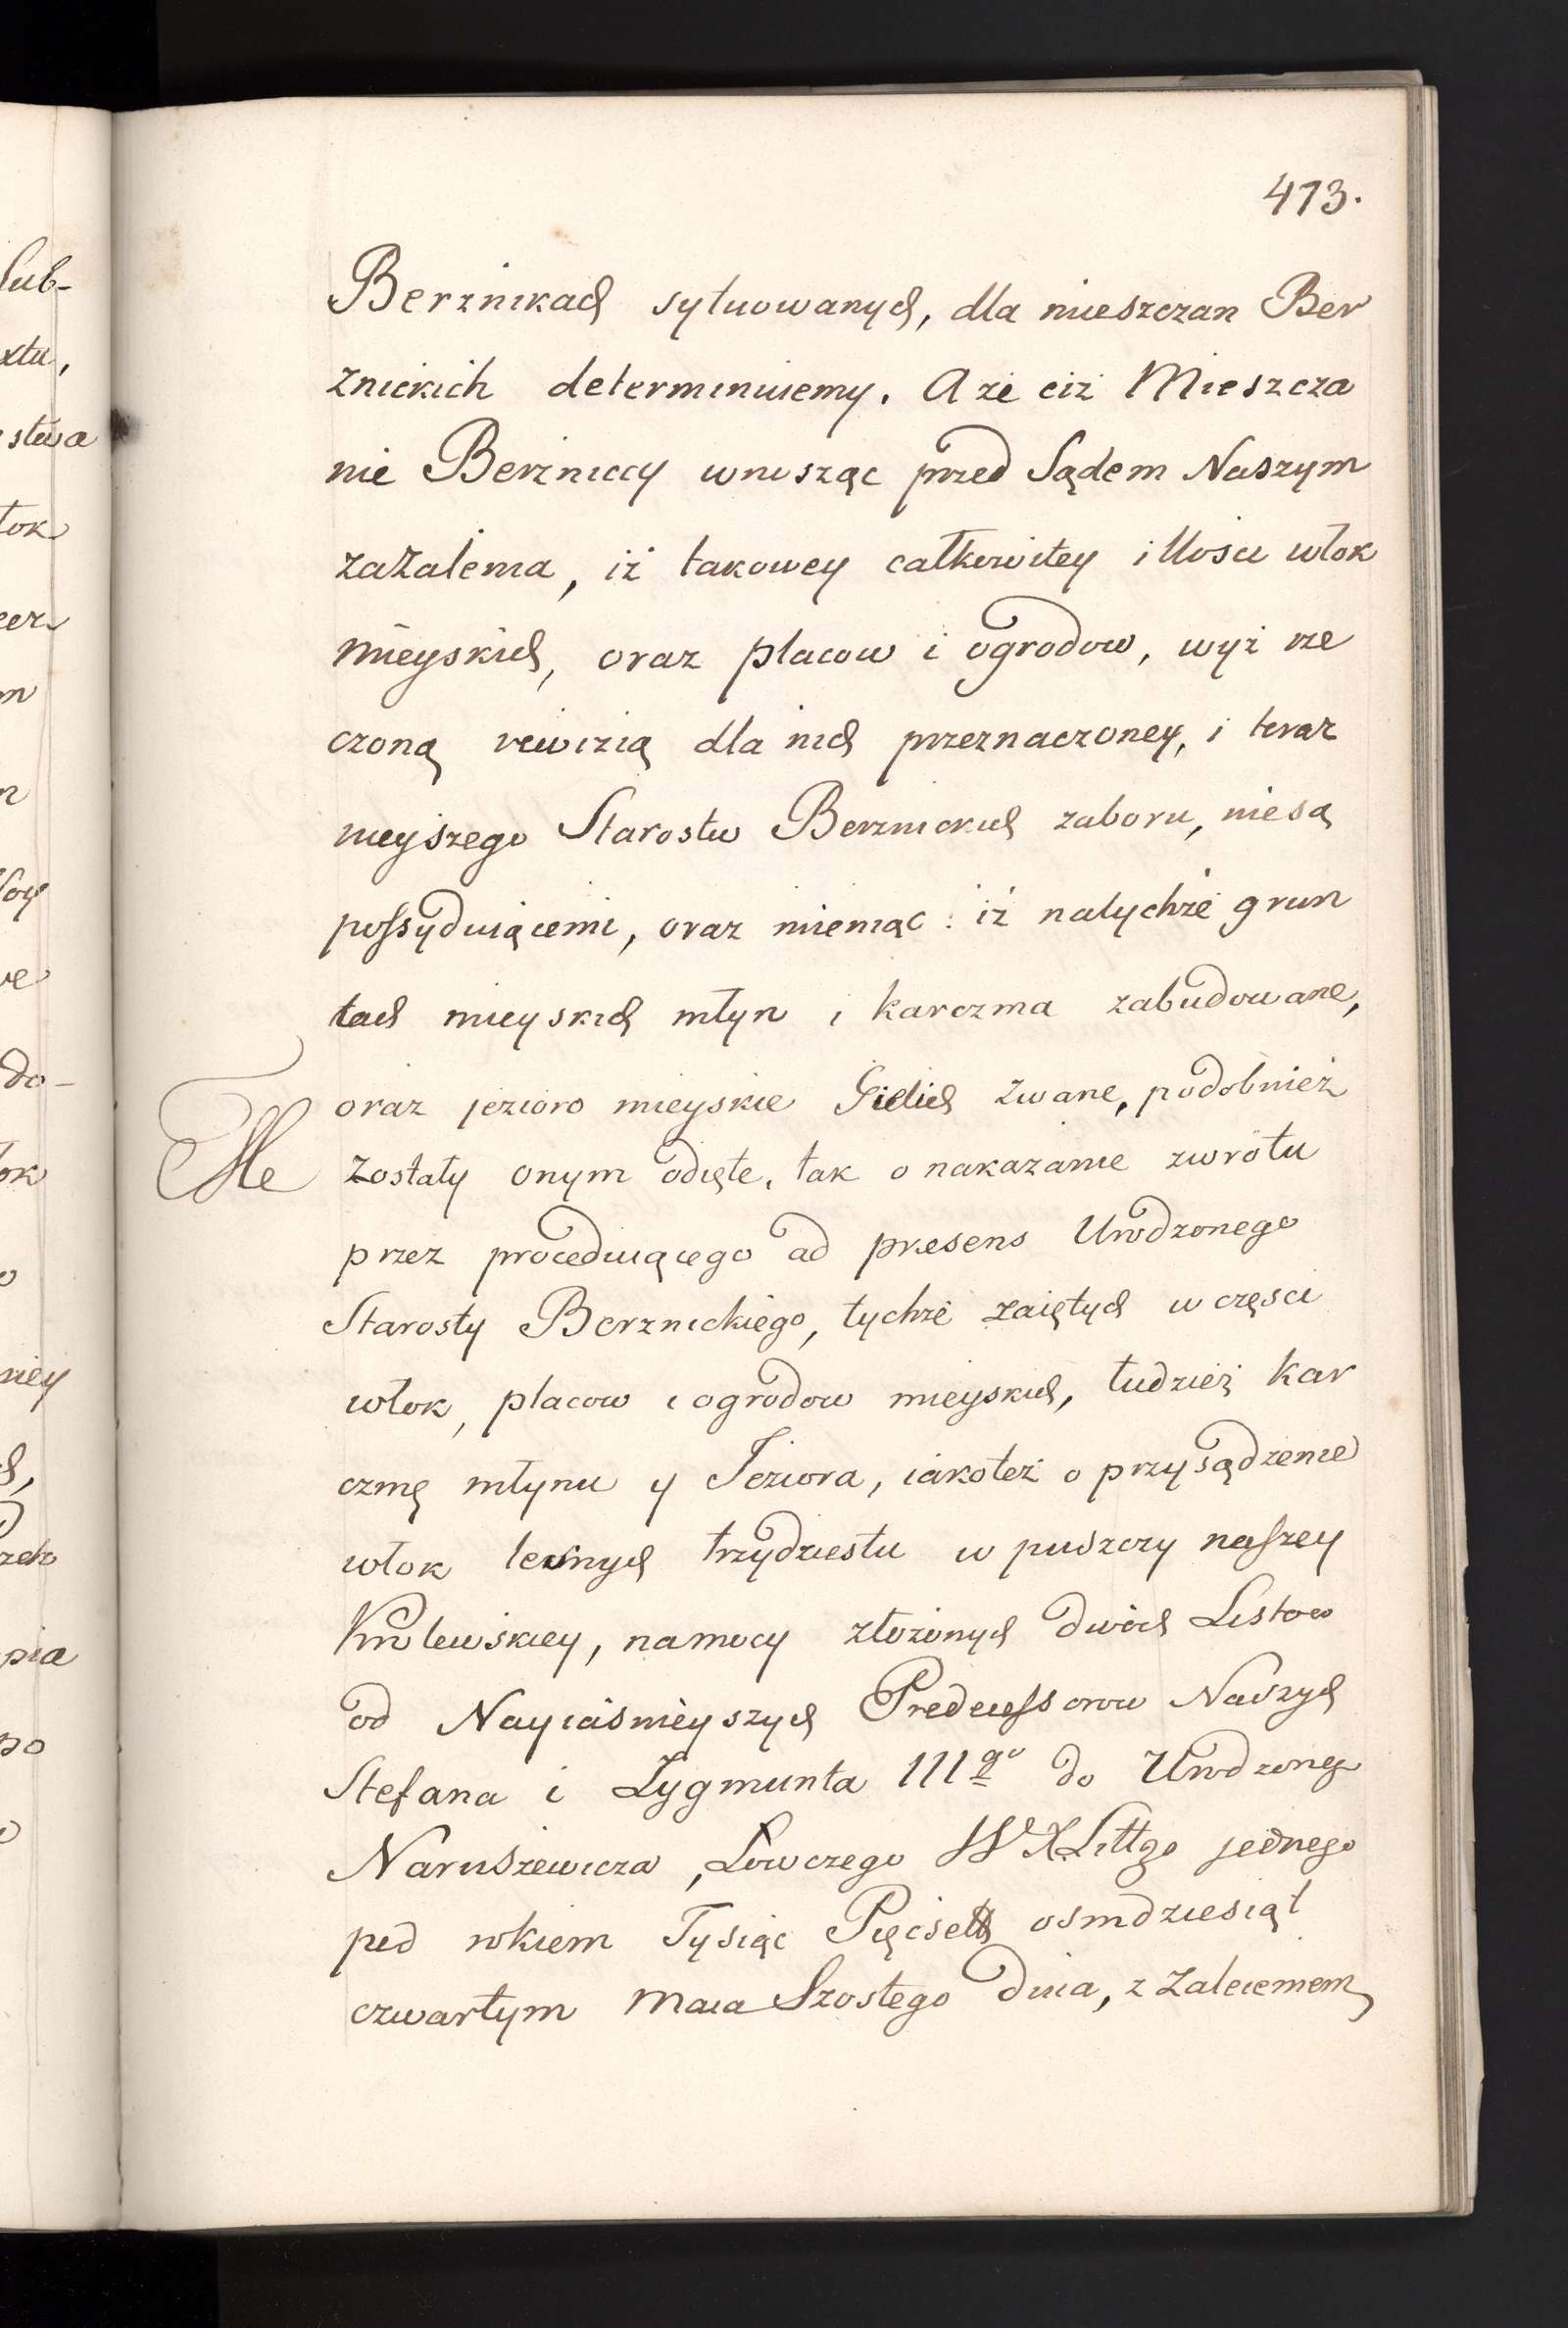 473.
Berznikach sytuowanych, dla mieszczan Ber
znickich determinuiemy. A że ciż Mieszcza
nie Berzniccy wnosząc przed Sądem Naszym
zażalenia, iż takowey całkowitey illości włok
mieyskich, oraz placow i ogrodow, wyż rze
czoną rewizią dla nich przeznaczoney, i teraz
nieyszego Starostw Berznickich zaboru, nie są
possyduiącemi, oraz mieniąc: iż natychże grun
tach mieyskich młyn i karczma zabudowane,
oraz jezioro mieyskie Gielich zwane, podobnież
zostały onym odięte, tak o nakazanie zwrotu
przez proceduiącego ad presens Urodzonego
Starosty Berznickiego, tychże zaiętych w części
włok, placow i ogrodow mieyskich, tudzież kar
czmę młynu y Jeziora, iakoteż o przysądzenie
włok leśnych trzydziestu w puszczy naszey
Krolewskiey, namocy złożonych dwóch Listow
od Nayiaśnieyszych Predecessorow Naszych
Stefana i Zygmunta III go do Urodzoneg
Naruszewicza, Łowczego W X Littgo jednego
pod rokiem Tysiąc Pięćset osmdziesiąt
czwartym Maia Szostego dnia, z zaleceniem